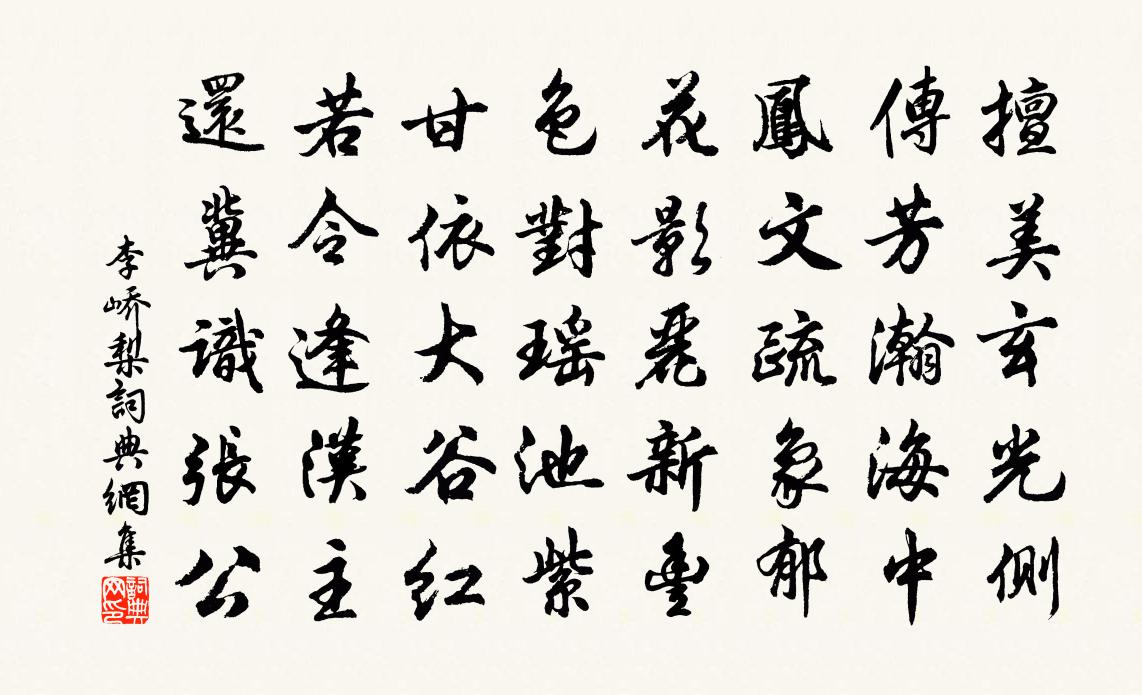 擅美玄光側
傳芳瀚海中
鳳文疏象郁
花影麗新豐
色對瑶池紫
甘依大谷红
若令逢漢主
還冀識張公
李嶠梨詞典網集
詞典网印